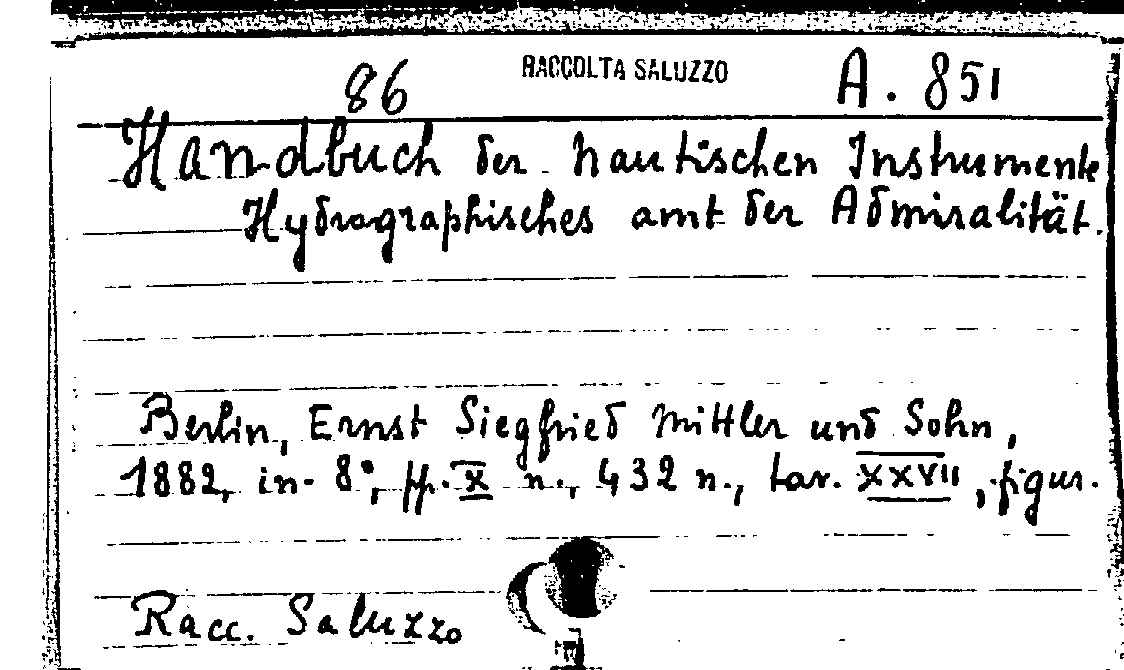 86 RACCOLTA SALUZZO A. 851
Handbuch der nautischen Instrumente
Hydrographisches amt der Admiralität.
Berlin, Ernst Siegfried Mittler und Sohn,
1882, in-8°, pp. X n., 432 n., tav. XXVII, figur.
Racc. Saluzzo